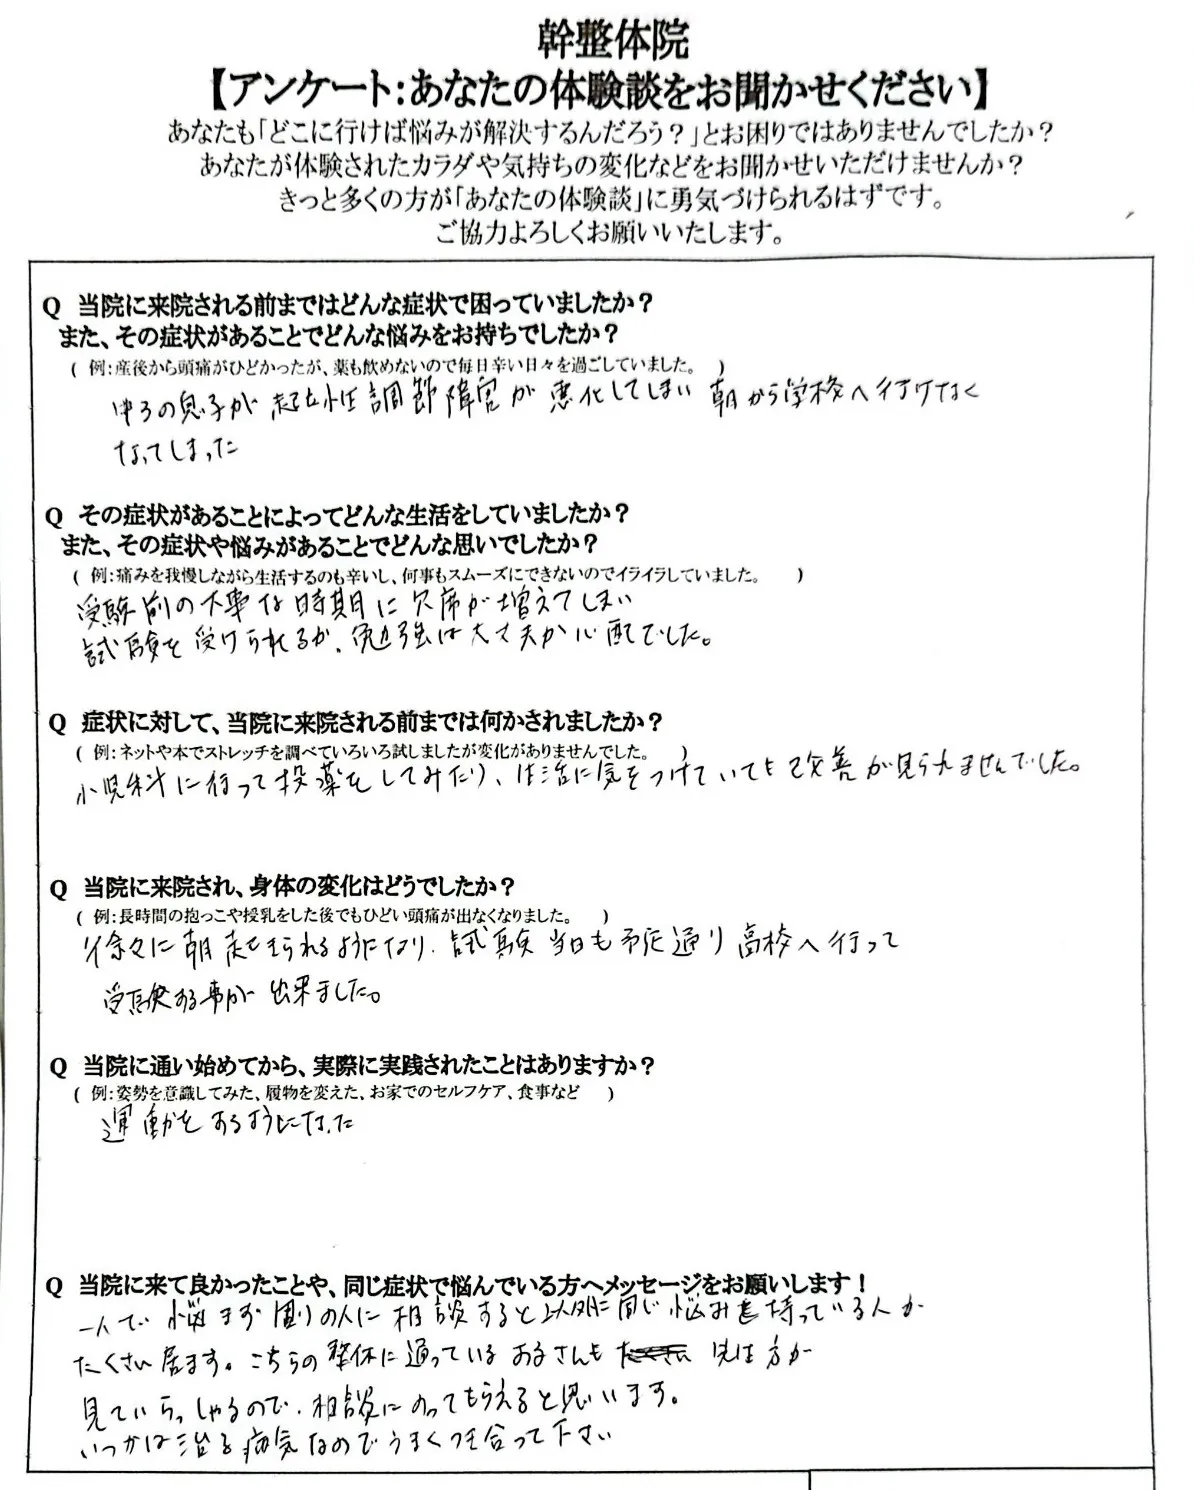 幹整体院
【アンケート：あなたの体験談をお聞かせください】
あなたも「どこに行けば悩みが解決するんだろう？」とお困りではありませんでしたか？
あなたが体験されたカラダや気持ちの変化などをお聞かせいただけませんか？
きっと多くの方が「あなたの体験談」に勇気づけられるはずです。
ご協力よろしくお願いいたします。
Q 当院に来院される前まではどんな症状で困っていましたか？
また、その症状があることでどんな悩みをお持ちでしたか？
( 例：産後から頭痛がひどかったが、薬も飲めないので毎日辛い日々を過ごしていました。 )
中3の息子が 起立性調節障害が 悪化してしまい 朝から学校へ行けなく
なってしまった
Q その症状があることによってどんな生活をしていましたか？
また、その症状や悩みがあることでどんな思いでしたか？
( 例：痛みを我慢しながら生活するのも辛いし、何事もスムーズにできないのでイライラしていました。 )
受験前の大事な時期に欠席が増えてしまい
試験を受けられるか、勉強は大丈夫か心配でした。
Q 症状に対して、当院に来院される前までは何かされましたか？
( 例：ネットや本でストレッチを調べていろいろ試しましたが変化がありませんでした。 )
小児科に行って投薬をしてみたり、生活に気をつけていても改善が見られませんでした。
Q 当院に来院され、身体の変化はどうでしたか？
( 例：長時間の抱っこや授乳をした後でもひどい頭痛が出なくなりました。 )
徐々に朝起きられるようになり、試験当日も予定通り高校へ行って
受験する事が出来ました。
Q 当院に通い始めてから、実際に実践されたことはありますか？
( 例：姿勢を意識してみた、履物を変えた、お家でのセルフケア、食事など )
運動をするようになった
Q 当院に来て良かったことや、同じ症状で悩んでいる方へメッセージをお願いします！
一人で悩まず周りの人に相談すると以外に同じ悩みを持っている人が
たくさん居ます。こちらの整体に通っているお子さんも 先生方が
見ていらっしゃるので、相談にのってもらえると思います。
いつかは治る病気なのでうまくつき合って下さい